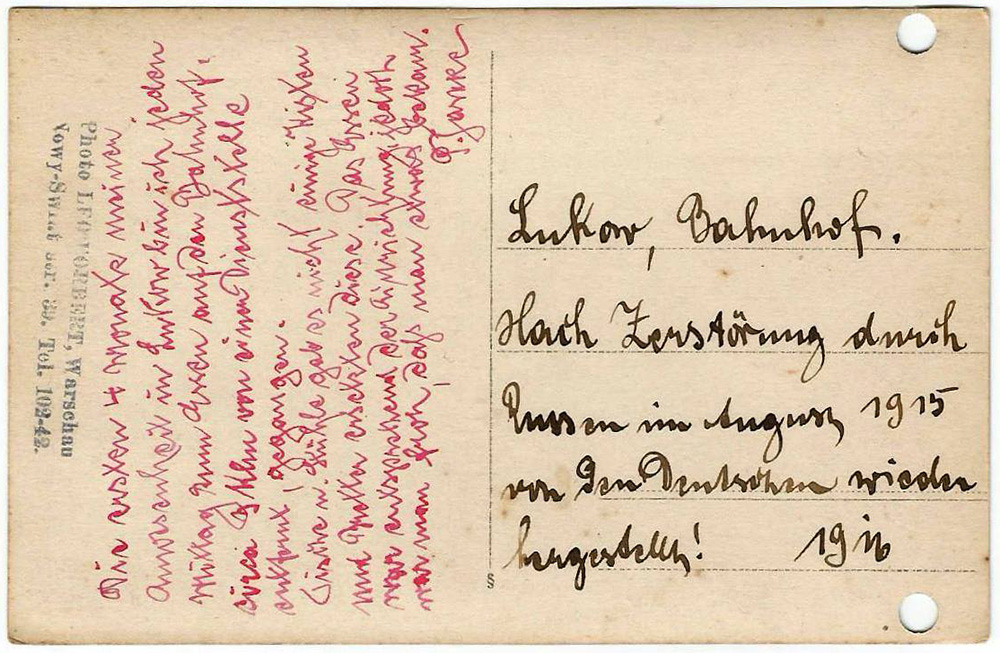 Lukow, Bahnhof.
Nach Zerstörung durch
Russen im August 1915
von den Deutschen wieder
hergestellt! 1916
Die ersten 4 Monate meiner
Anwesenheit in Lukow bin ich jeden
Mittag zum Essen auf den Bahnhof,
circa Klm von einer Dienststelle
entfernt, gegangen.
Tische u. Stühle gab es nicht, einige Kisten
und Bretter ersetzten diese. Das Essen
war entsprechend der Einrichtung, jedoch
war man froh, dass man etwas bekam.
Photo LEO FORBERT, Warschau
Nowy-Swiat Nr. 39. Tel. 102-42.